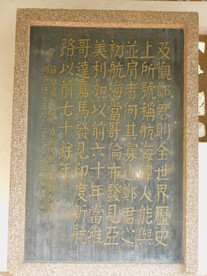 及觀鄭君則全世界歷史
上所號稱航海偉人能與
並肩者何其寡也鄭君之
初航海當哥倫布發見亞
美利加以前六十餘年當維
哥達嘉馬發見印度新航
路以前七十餘年